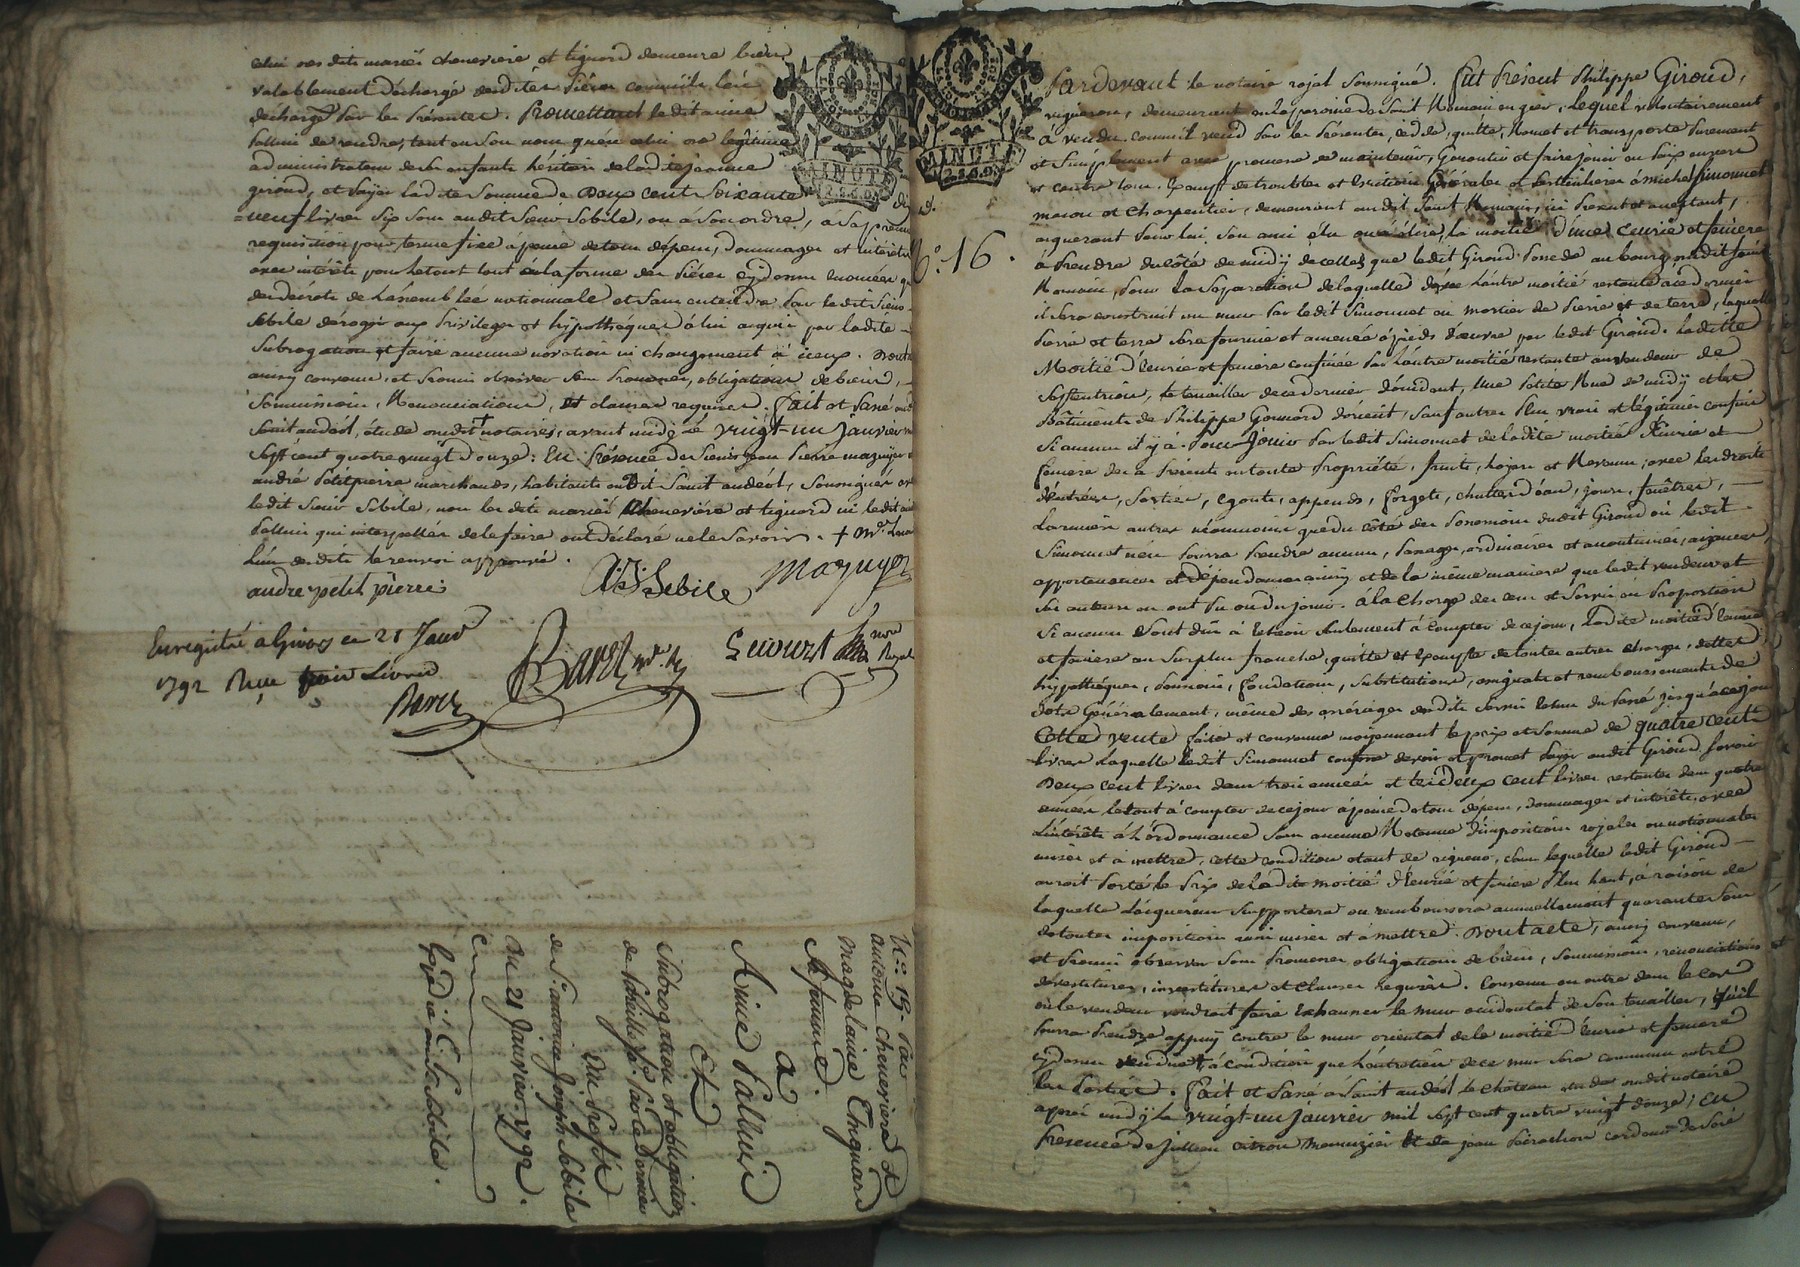 valablement déchargé
décharge par les présentes. Promettant ledit aimé
Pallui de rendre, tant en son nom qu'en celui de légitime
administrateur de ses enfants héritiers de ladite jeanne
giroud, et payer ladite somme de Deux cent soixante
neuf livres six sous audit sieur Sebile, ou à son ordre, à sa première
requisition pour terme fixe à peine de tous dépens, dommages et intérêts
des décrets de l'assemblée nationnale et sans entendre par ledit sieur
Sebile déroger aux privileges et hypothéques à lui acquis par ladite
Subrogation et faire aucune novation ni changement à iceux. Dont acte
ainsy convenu, et promis observer sous promesses, obligations de biens,
Soumissions, Renonciations, et clauses requises. Fait et passé audit
Saint andéol, étude dudit notaire, avant midy le vingt-un janvier mil
sept cent quatre vingt douze: En présence des sieurs jean Pierre mazuyer et
andré Petitpierre marchands, habitants audit Saint andéol, soussignés avec
ledit sieur Sebile, non les dits mariés chenevière et tiguard ni ledit aimé
Pallui qui interpellés de le faire ont déclaré ne le savoir.
le renvoi approuvé.
andre petit pierre
A: J: Sebile
Mazuyer
Enregistré a Givors ce 21 Janv
1792 Reçu livres
Lecourt
Royal
N.º 15. Par
antoine cheneviere et
Magdelaine Tiguard
Sa femme.
a
Aimé Pallui
Et
Subrogation et obligation
par ce dernier
Au Profit
de S.r antoine Joseph Sebile
du 21 janvier 1792.
MINUTE
MINUTE
N.º 16.
Pardevant le notaire royal soussigné. Fut présent Philippe Giroud,
vigneron, demeurant en la paroisse de Saint Romain en gier, lequel volontairement
a vendu comme il vend par les présentes, cède, quitte, Remet et transporte purement
et simplement avec promesse de maintenir, garantir et faire jouir en paix envers
et contre tous. Exempt de troubles et évictions générales et particulières à michel simonnet
maçon et charpentier, demeurant audit Saint Romain, ici présent et acceptant,
acquerant pour lui son ami élu ou à élire, la moitié d'une écurie et feniere
à prendre du côté de midy de celles que ledit Giroud possede au bourg dudit Saint
Romain, pour la séparation de laquelle d'avec l'autre moitié restante à ce dernier
il sera construit un mur par ledit Simonnet en mortier de pierre et de terre, laquelle
pierre et terre sera fournie et amenée à pieds d'œuvre par ledit Giroud. Ladite
Moitié d'écurie et feniere confinée par l'autre moitié restante au vendeur de
Septentrion, le tenailler de ce dernier d'occident, une petite Rue de midy et les
Bâtiments de Philippe Gonnard d'orient, sauf autres plus vrais et légitimes confins
si aucuns il y a. Pour jouir par ledit Simonnet de ladite moitié d'écurie et
feniere dès à présent en toute propriété, fruits, loyers et Revenus, avec les droits
d'entrées, sorties, egouts, appends, forgets, chuttes d'eau, jours, fenêtres,
Simonnet n'en pourra prendre aucuns, passages ordinaires et accoutumés, aisances,
appartenances et dépendances ainsy et de la même maniere que ledit vendeur et
ses auteurs en ont pu ou du jouir. à la charge des cens et servis en proportion
si aucuns sont dûs à échoir seulement à compter de ce jour, ladite moitié d'écurie
et feniere au surplus franche, quitte et exempte de toutes autres charges, dettes,
hypothéques, pensions, fondations, substitutions, augments et remboursements de
dots généralement, même des arrérages desdits servis échus du passé jusqu'à ce jour
Cette vente faite et convenue moyennant le prix et somme de quatre cents
livres laquelle ledit Simonnet confesse devoir et promet payer audit Giroud savoir
Deux cent livres dans trois années et les deux cent livres restantes dans quatre
années le tout à compter de ce jour à peine de tous dépens, dommages et intérêts avec
L'intérêt à l'ordonnance sans aucune Retenue d'impositions royales ou nationnales
mises et à mettre, cette condition étant de rigueur, sans laquelle ledit Giroud
auroit porté le prix de ladite moitié d'écurie et feniere plus haut, à raison de
laquelle l'acquereur supportera ou remboursera annuellement quarante sous
de toutes impositions mises et à mettre. Dont acte, ainsy convenu,
et promis observer sous promesses obligations de biens, soumissions, renonciations et
devestitures, investitures et clauses requises. Convenu en outre dans le cas
où le vendeur voudrait faire exhausser le mur occidental de son tenailler, qu'il
pourra prendre appuy contre le mur oriental de la moitié d'écurie et feniere
cydessus vendue, à condition que l'entretien de ce mur sera commun entre
les parties. Fait et passé à Saint andéol le château étude dudit notaire
après midy le vingt-un janvier mil sept cent quatre vingt douze; En
présence de jullien citron menuizier et de jean Périachon cordonnier